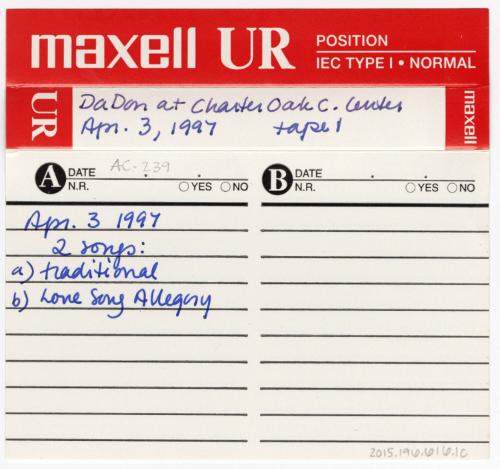 maxell UR POSITION
IEC TYPE I • NORMAL
UR DaDon at Charter Oak C. Center maxell
Apr. 3, 1997 tape 1
A DATE AC-239 . .
N.R. ○ YES ○ NO
B DATE . .
N.R. ○ YES ○ NO
Apr. 3 1997
2 songs:
a) traditional
b) Love Song Allegory
2015.196.616.1c